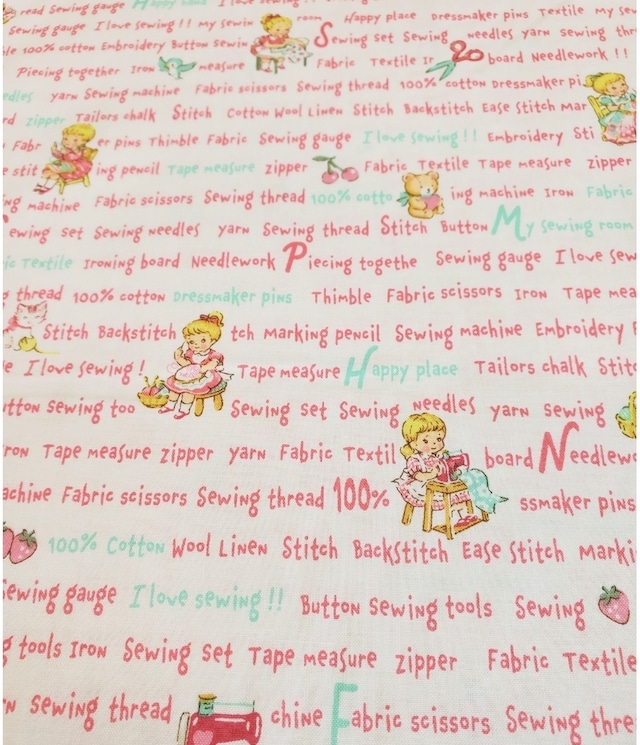 read Sewing gauge Happy place I love sewing
Sewing gauge I love sewing!! My Sewin room Happy place Dressmaker pins Textile My se
le 100% cotton Embroidery Button sewin Sewing set Sewing needles yarn sewing thr
Piecing together Iron measure Fabric Textile Ir board Needlework!!
edles yarn Sewing machine Fabric scissors Sewing thread 100% cotton Dressmaker pi
rd zipper Tailors chalk Stitch Cotton Wool Linen Stitch Backstitch Ease Stitch Mar
Fabr er pins Thimble Fabric Sewing gauge I love sewing!! Embroidery Sti
e stit ing pencil Tape measure zipper Fabric Textile Tape measure zipper
ng machine Fabric scissors Sewing thread 100% cotto ing machine Iron Fabric
ewing set Sewing needles yarn Sewing thread Stitch Button My sewing room
ic Textile Ironing board Needlework Piecing togethe Sewing gauge I love sew
g thread 100% cotton Dressmaker pins Thimble Fabric scissors Iron Tape mea
Stitch Backstitch tch Marking pencil Sewing machine Embroidery
e I love sewing! Tape measure Happy place Tailors chalk Stitc
utton sewing too Sewing set Sewing needles yarn sewing
ron Tape measure zipper yarn Fabric Textil board Needlewo
achine Fabric scissors Sewing thread 100% ssmaker pins
100% Cotton Wool Linen Stitch Backstitch Ease Stitch Marki
Sewing gauge I love sewing!! Button sewing tools Sewing
g tools Iron Sewing set Tape measure zipper Fabric Textile
n sewing thread chine Fabric scissors Sewing thre